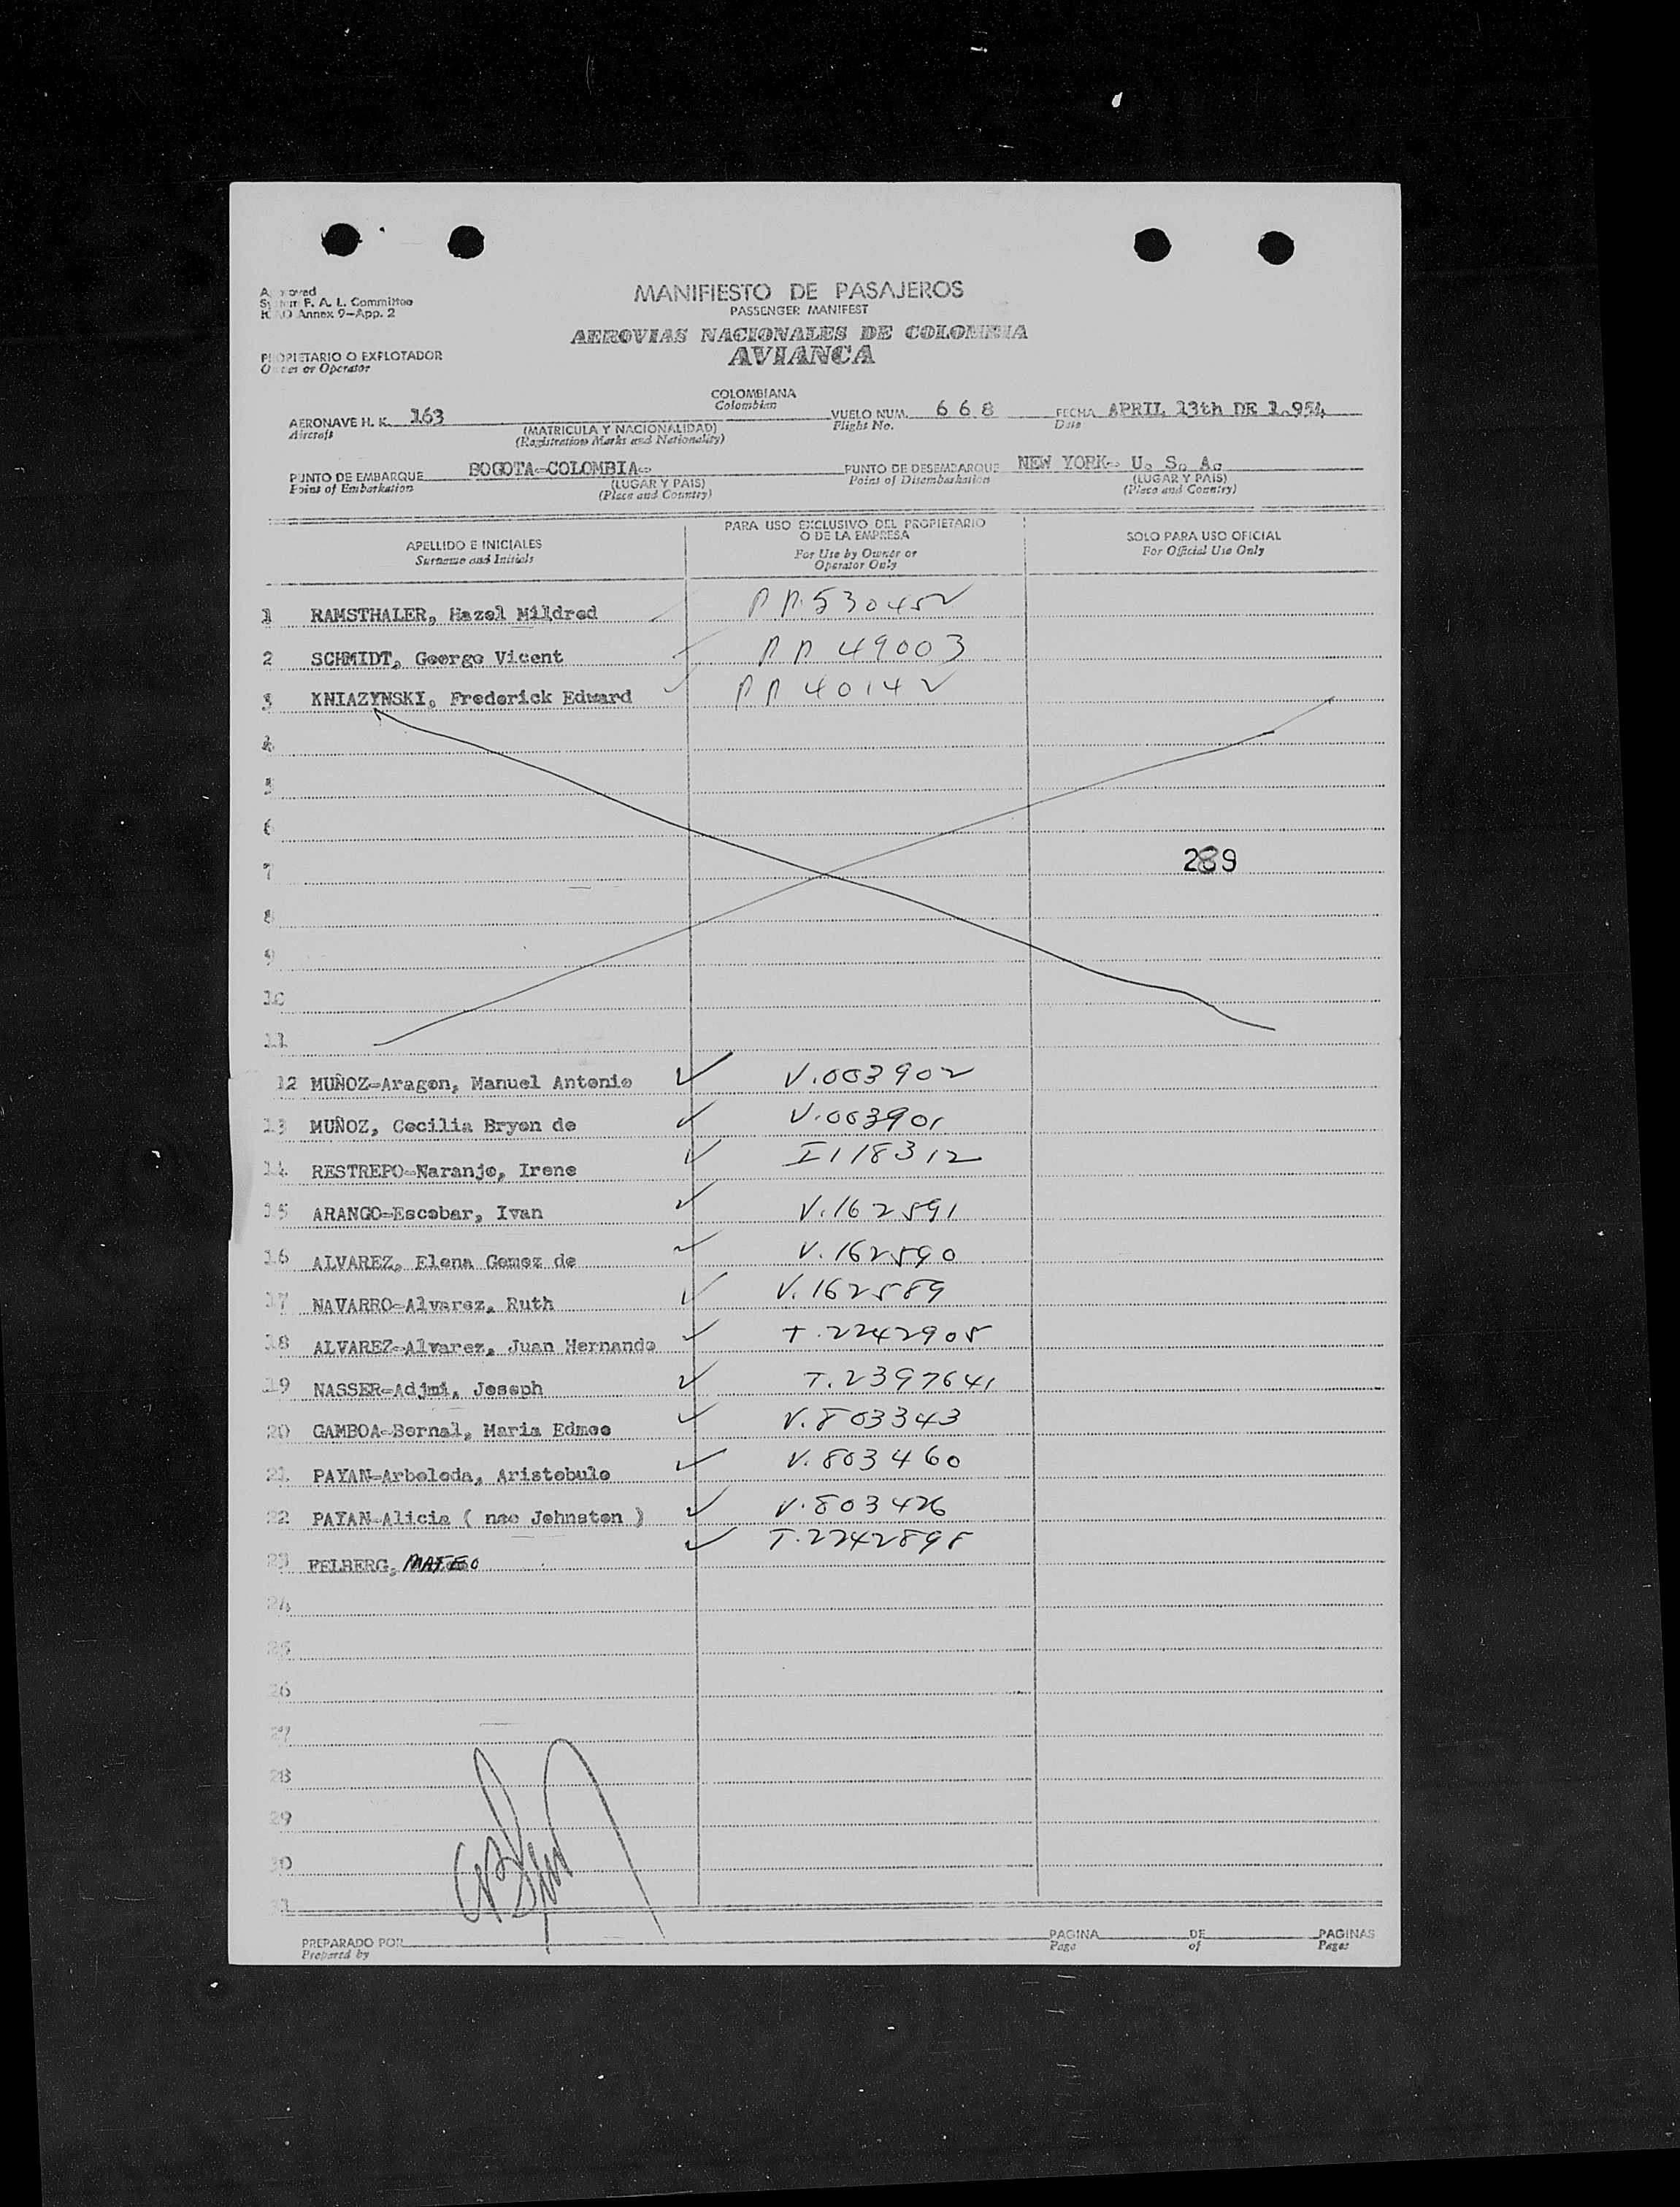 Approved
System F. A. L. Committee
ICAO Annex 9-App. 2
MANIFIESTO DE PASAJEROS
PASSENGER MANIFEST
AEROVIAS NACIONALES DE COLOMBIA
AVIANCA
PROPIETARIO O EXPLOTADOR
Owner or Operator
COLOMBIANA
Colombian
AERONAVE H. K. 163
Aircraft
(MATRICULA Y NACIONALIDAD)
(Registration Marks and Nationality)
VUELO NUM. 6 6 8
Flight No.
FECHA APRIL 13th DE 1.954
Date
PUNTO DE EMBARQUE BOGOTA-COLOMBIA-
Point of Embarkation
(LUGAR Y PAIS)
(Place and Country)
PUNTO DE DESEMBARQUE NEW YORK- U. S. A.
Point of Disembarkation
(LUGAR Y PAIS)
(Place and Country)
APELLIDO E INICIALES
Surname and Initials
PARA USO EXCLUSIVO DEL PROPIETARIO
O DE LA EMPRESA
For Use by Owner or
Operator Only
SOLO PARA USO OFICIAL
For Official Use Only
1 RAMSTHALER, Hazel Mildred PP.530452
2 SCHMIDT, George Vicent PP 49003
3 KNIAZYNSKI, Frederick Edward PP 40142
4
5
6
7 289
8
9
10
11
12 MUÑOZ-Aragon, Manuel Antonio V.003902
13 MUÑOZ, Cecilia Bryon de V.003901
14 RESTREPO-Naranjo, Irene I118312
15 ARANGO-Escobar, Ivan V.162591
16 ALVAREZ, Elena Gomez de V.162590
17 NAVARRO-Alvarez, Ruth V.162589
18 ALVAREZ-Alvarez, Juan Hernando T.2242905
19 NASSER-Adjmi, Joseph T.2397641
20 GAMBOA-Bernal, Maria Edmee V.803343
21 PAYAN-Arboleda, Aristobulo V.803460
22 PAYAN-Alicia ( nee Johnston ) V.803426
23 FELBERG, MATEO T.2242898
24
25
26
27
28
29
30
31
PREPARADO POR
Prepared by
PAGINA DE PAGINAS
Page of Pages